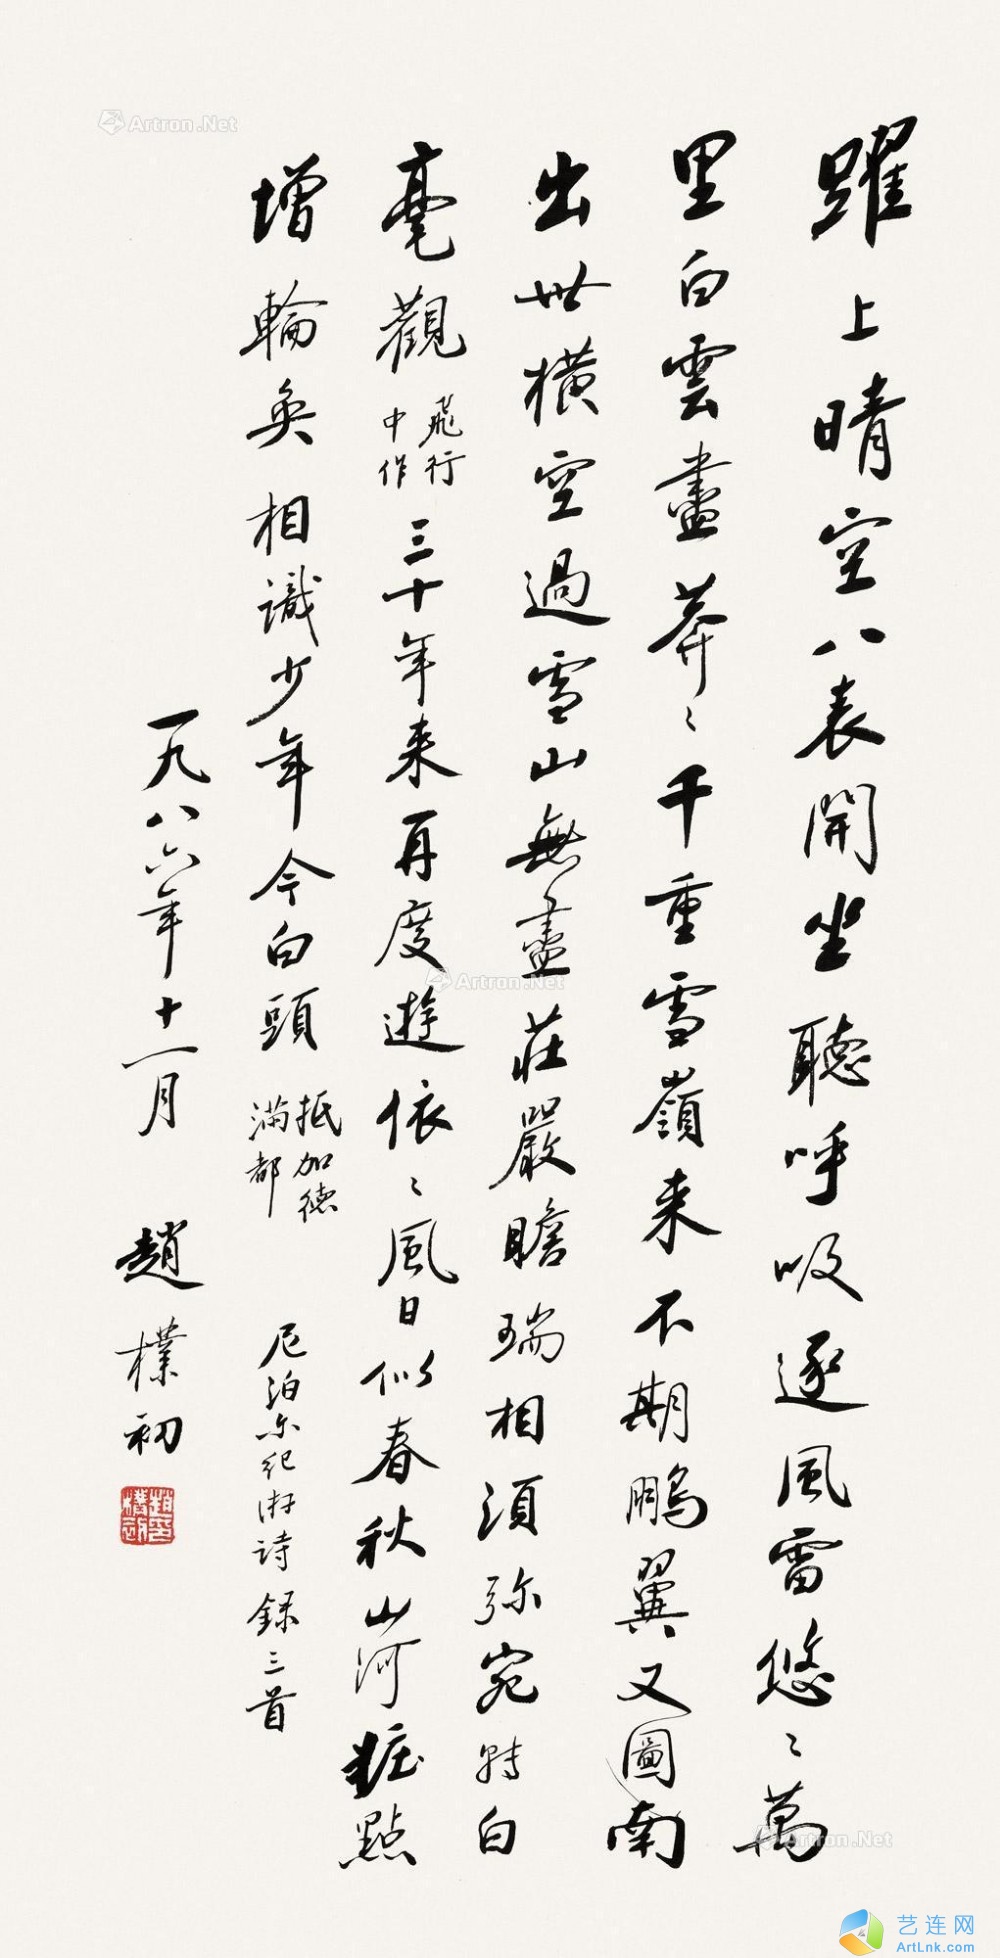 躍上晴空八表開坐聽呼吸逐風雷悠〻萬
里白雲盡莽〻千重雪嶺来不期鵬翼又圖南
出世橫空過雪山無盡莊嚴瞻瑞相須弥宛轉白
毫觀
飛行
中作
三十年来再度遊依〻風日似春秋山河粧點
增輪奐相識少年今白頭
抵加德
满都
尼泊尔纪游诗録三首
一九八六年十一月 趙樸初
趙樸初印
Artron.Net
Artron.Net
Artron.Net
艺连网
ArtLnk.com